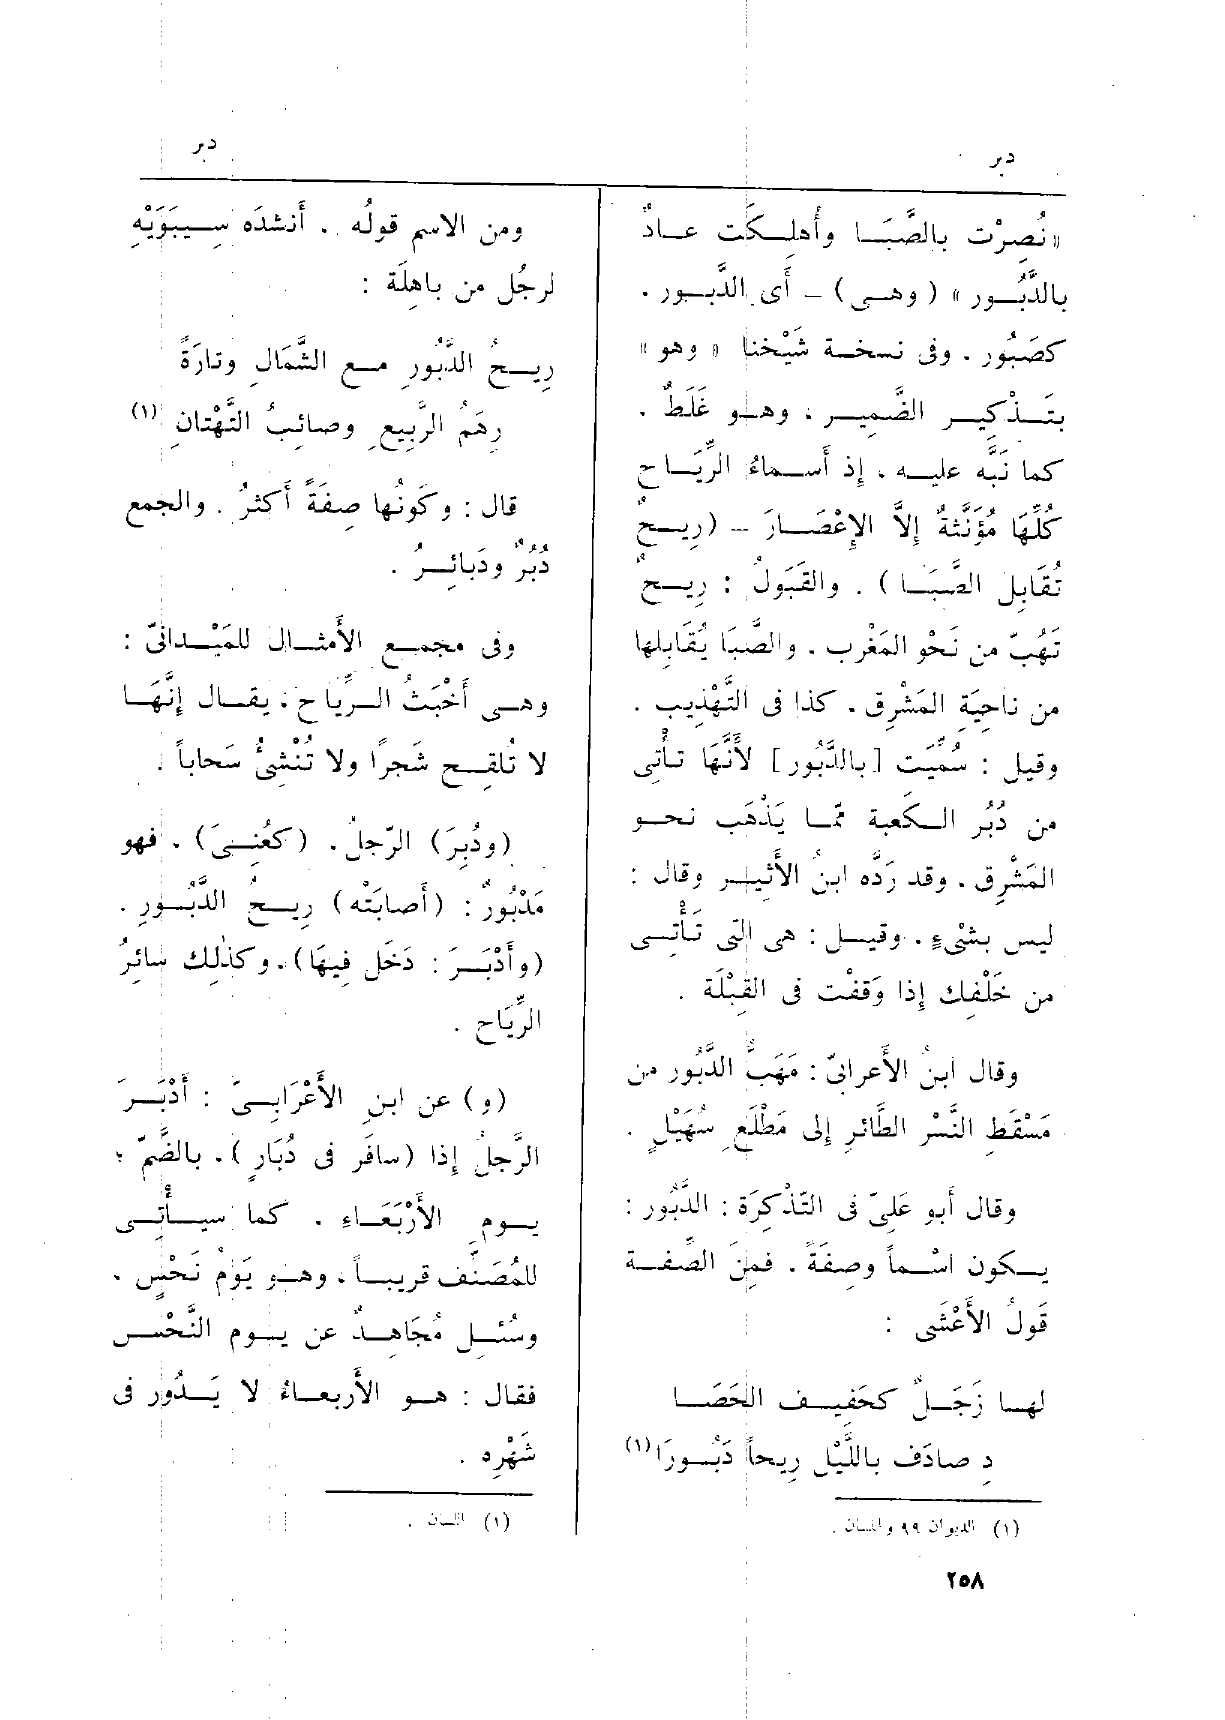 دبر
دبر
« نُصِرْت بالصَّبَا وأُهلِكَت عادٌ
بالدَّبُور » ( وهى ) – أَى الدَّبور .
كصَبُور . وفى نسخة شَيْخنا « وهو »
بتَذْكِير الضَّمِير ، وهو غَلَطٌ .
كما نَبَّه عليه . إِذ أَسماءُ الرِّيَاحِ
كُلِّهَا مُؤَنَّثةٌ إِلاَّ الإِعْصَارَ – (رِيحٌ
تُقَابِل الصَّبَا ) . والقَبُولُ : رِيحٌ
تَهُبّ من نَحْو المَغْرِب . والصَّبَا يُقَابِلها
من ناحِيَة المَشْرِق . كذا فى التَّهْذِيب .
وقيل : سُمِّيَت [بالدَّبُور] لأَنَّهَا تأْتِى
من دُبُر الكعبة ممّا يَذْهَب نحو
المَشْرِق . وقد رَدَّه ابنُ الأَثير وقال :
ليس بشْىءٍ . وقيل : هى التى تَأْتِى
من خَلْفِك إِذا وَقَفْت فى القِبْلَة .
وقال ابنُ الأَعرابىّ : مَهَبُّ الدَّبُور من
مَسْقَطِ النَّسْر الطَّائر إِلى مَطْلَعِ سُهَيْلٍ .
وقال أَبو عَلِىّ فى التَّذْكِرَة : الدَّبُور :
يكون اسْماً وصِفَةً . فمِنَ الصِّفة
قَولُ الأَعْشَى :
لها زَجَلٌ كحَفِيف الحَصَا
دِ صادَف باللَّيْل رِيحاً دَبُورَا (١)
(١) الديوان ٩٩ واللسان .
ومن الاسم قولُه . أَنشدَه سِيبَوَيْهِ
لرجُل من باهِلَة :
رِيحُ الدَّبُورِ مع الشَّمَالِ وتارَةً
رِهَمُ الرَّبِيعِ وصائبُ التَّهْتانِ (١)
قال : وكَونُها صِفَةً أَكثرُ . والجمع
دُبُرٌ ودَبائِرُ .
وفى مجمع الأَمثال للمَيْدانىّ :
وهى أَخْبَثُ الرِّياح ، يقال إِنَّهَا
لا تُلقِح شَجرًا ولا تُنْشِئُ سَحاباً .
(ودُبِرَ) الرّجلُ. (كعُنِىَ) . فهو
مَدْبُورٌ : (أَصابَتْه) رِيحُ الدَّبُورِ .
(وأَدْبَرَ : دَخَل فِيهَا). وكذٰلِك سائِرُ
الرِّيَاح .
(و) عن ابنِ الأَعْرَابِىّ : أَدْبَرَ
الرَّجلُ إِذا (سافَر فى دُبَارٍ ). بالضَّمّ ؛
يومِ الأَرْبَعَاءِ . كما سيأْتِى
للمُصَنِّف قريباً ، وهو يَوْمُ نَحْسٍ .
وسُئل مُجَاهِدٌ عن يوم النَّحْس
فقال : هو الأَربعاءُ لا يَدُور فى
شَهْرِه .
(١) اللسان .
٢٥٨